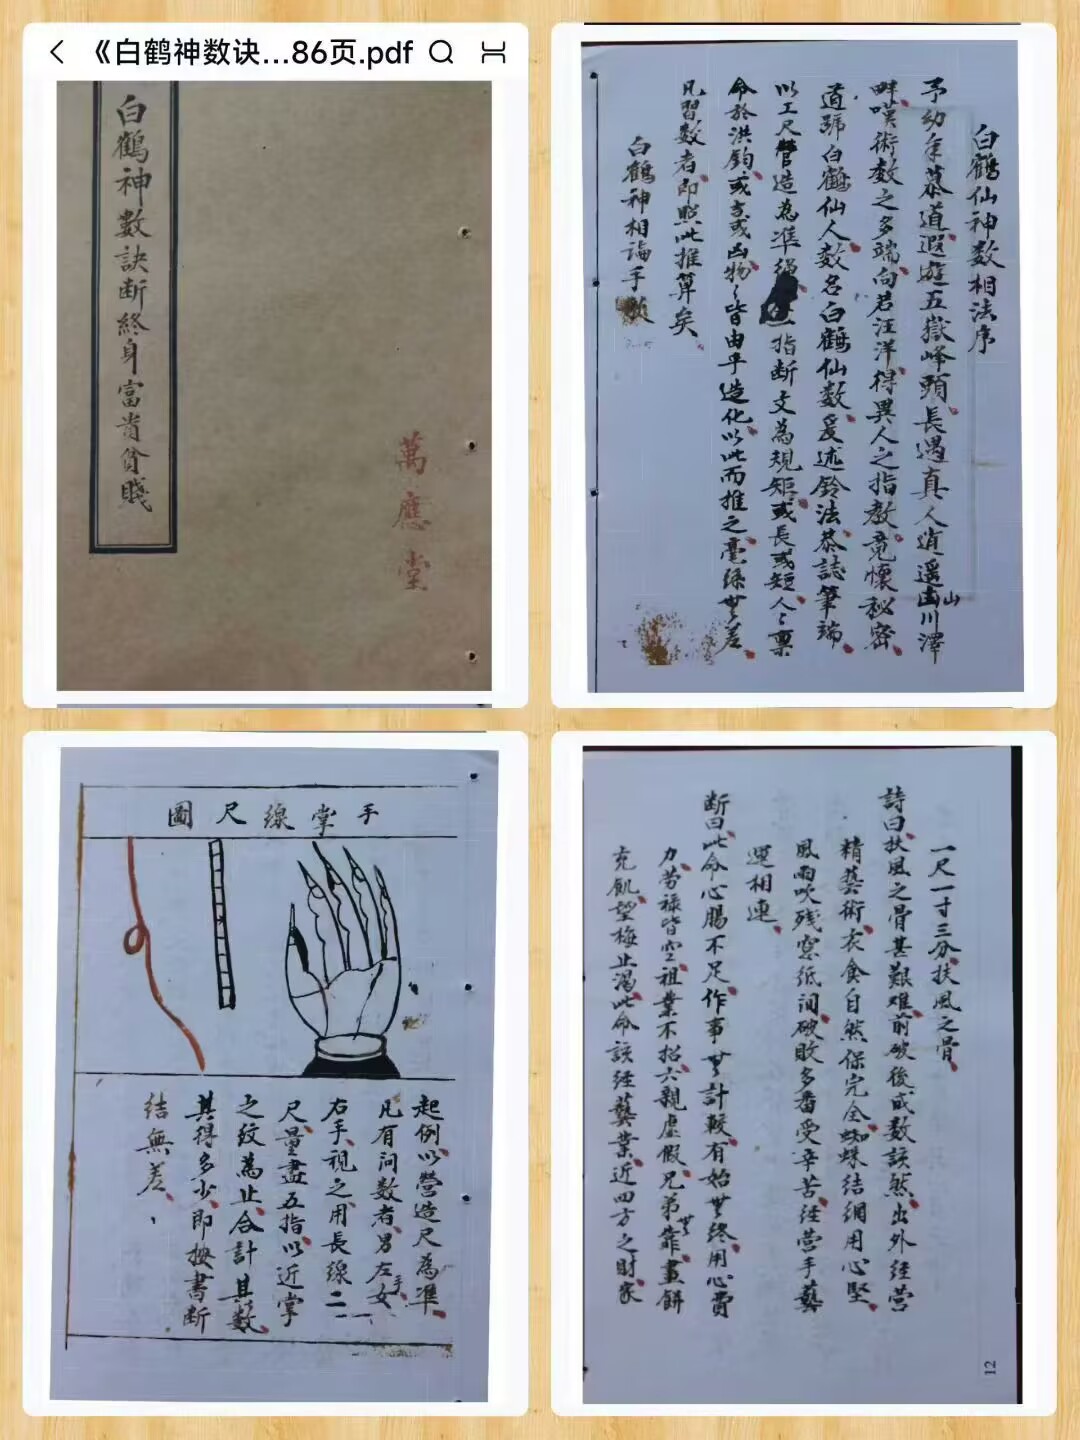 《白鹤神数诀...86页.pdf
白鶴神數訣断終身富貴貧賤
萬應堂
白鶴仙神数相法序
予幼年慕道遐遊五嶽峰頭長遇真人逍遥山川澤
畔嘆術数之多端向若汪洋得異人之指教竟懷秘密
道號白鶴仙人数名白鶴仙数爰述鈴法恭誌筆端
以工尺營造為準繩 指断文為規矩或長或短人〻禀
命於洪鈞或吉或凶物〻皆由乎造化以此而推之毫絲無差
凡習数者即照此推算矣
白鶴神相論手
手掌線尺圖
起例以營造尺為準
凡有问数者男左手女
右手視之用長線二一
尺量盡五指以近掌
之紋為止合計其數
其得多少即按書断
结無差、
一尺一寸三分扶風之骨
詩曰扶風之骨甚艱难前破後成数該然出外經营
精藝術衣食自然保完全蜘蛛结網用心堅
風雨吹残窓纸间破敗多番受辛苦经营手藝
運相連
断曰此命心腸不足作事無計較有始無终用心費
力劳禄皆空祖業不招六親虚假兄弟無靠畫餅
充飢望梅止渴此命該经藝業近四方之財家
12